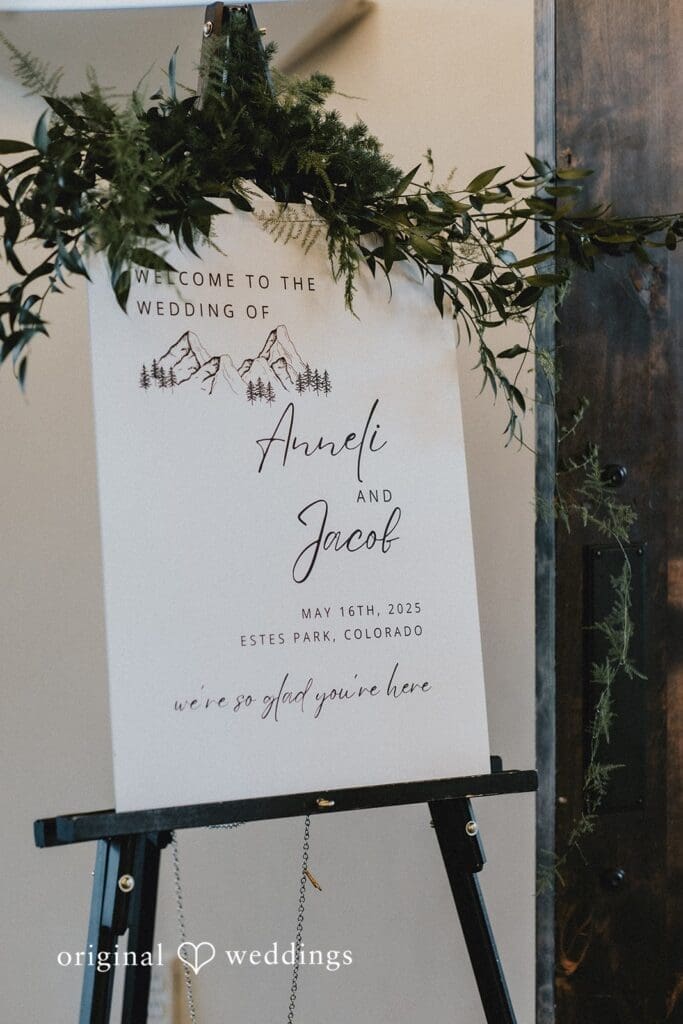 WELCOME TO THE
WEDDING OF
Anneli
AND
Jacob
MAY 16TH, 2025
ESTES PARK, COLORADO
we're so glad you're here
original weddings